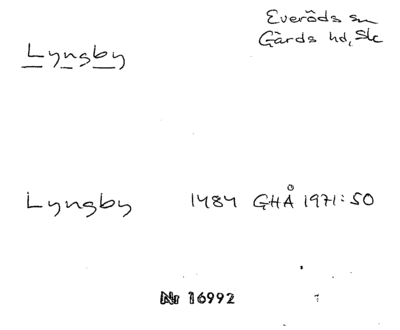 Everöds sn
Gärds hd, Sk
Lyngby
Lyngby 1484 GHÅ 1971:50
Nr 16992